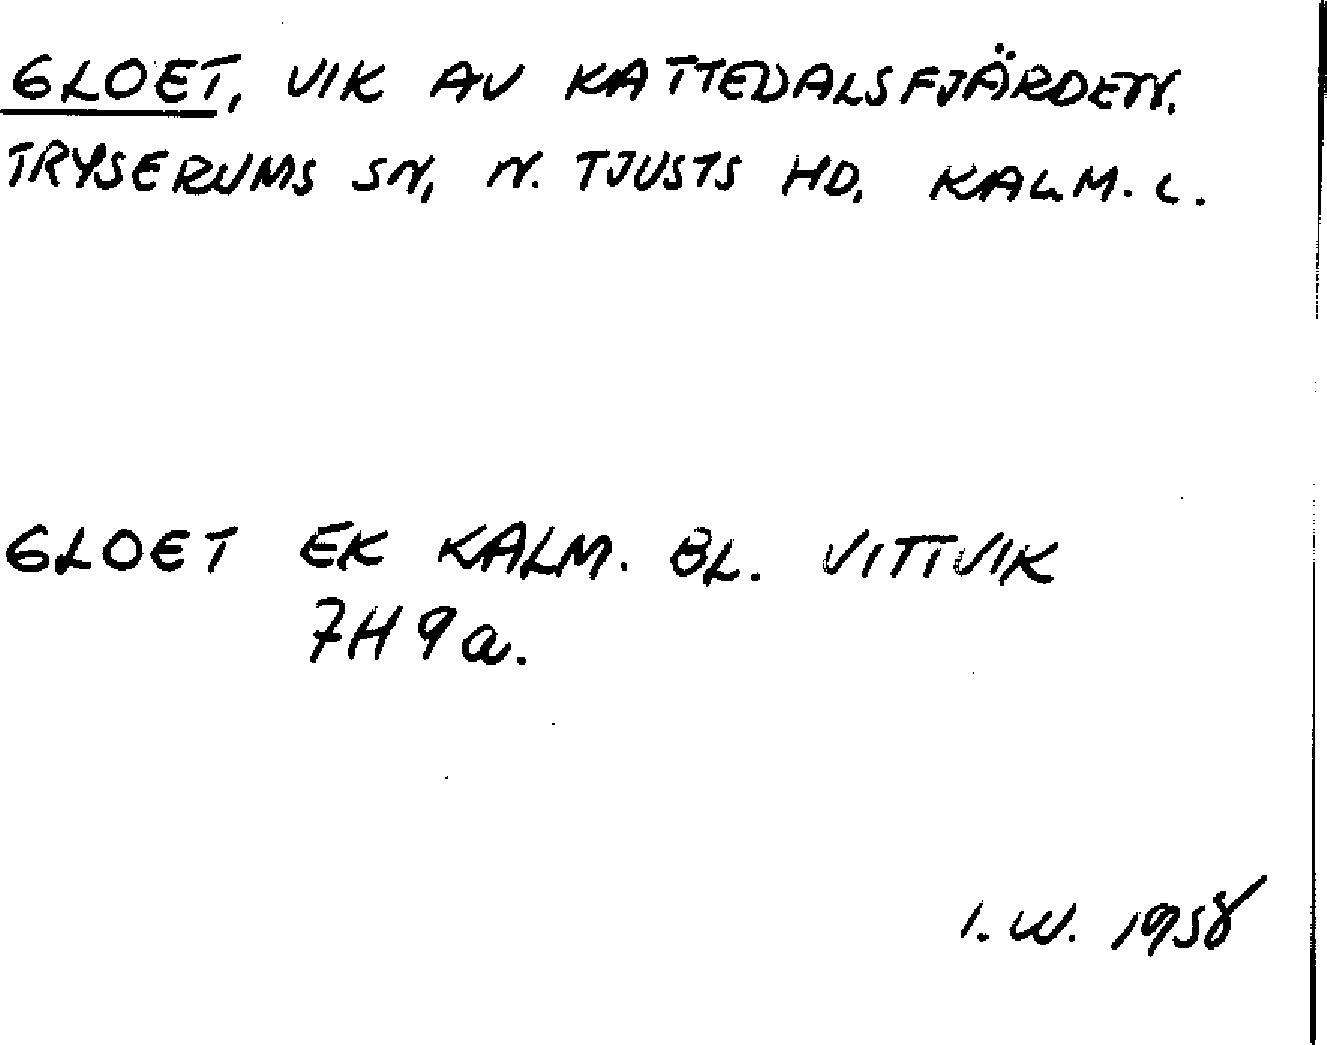 GLOET, VIK AV KATTEDALSFJÄRDEN.
TRYSERUMS SN, N. TJUSTS HD, KALM. L.
GLOET EK KALM. BL. VITTVIK
7H 9a.
I. W. 1958